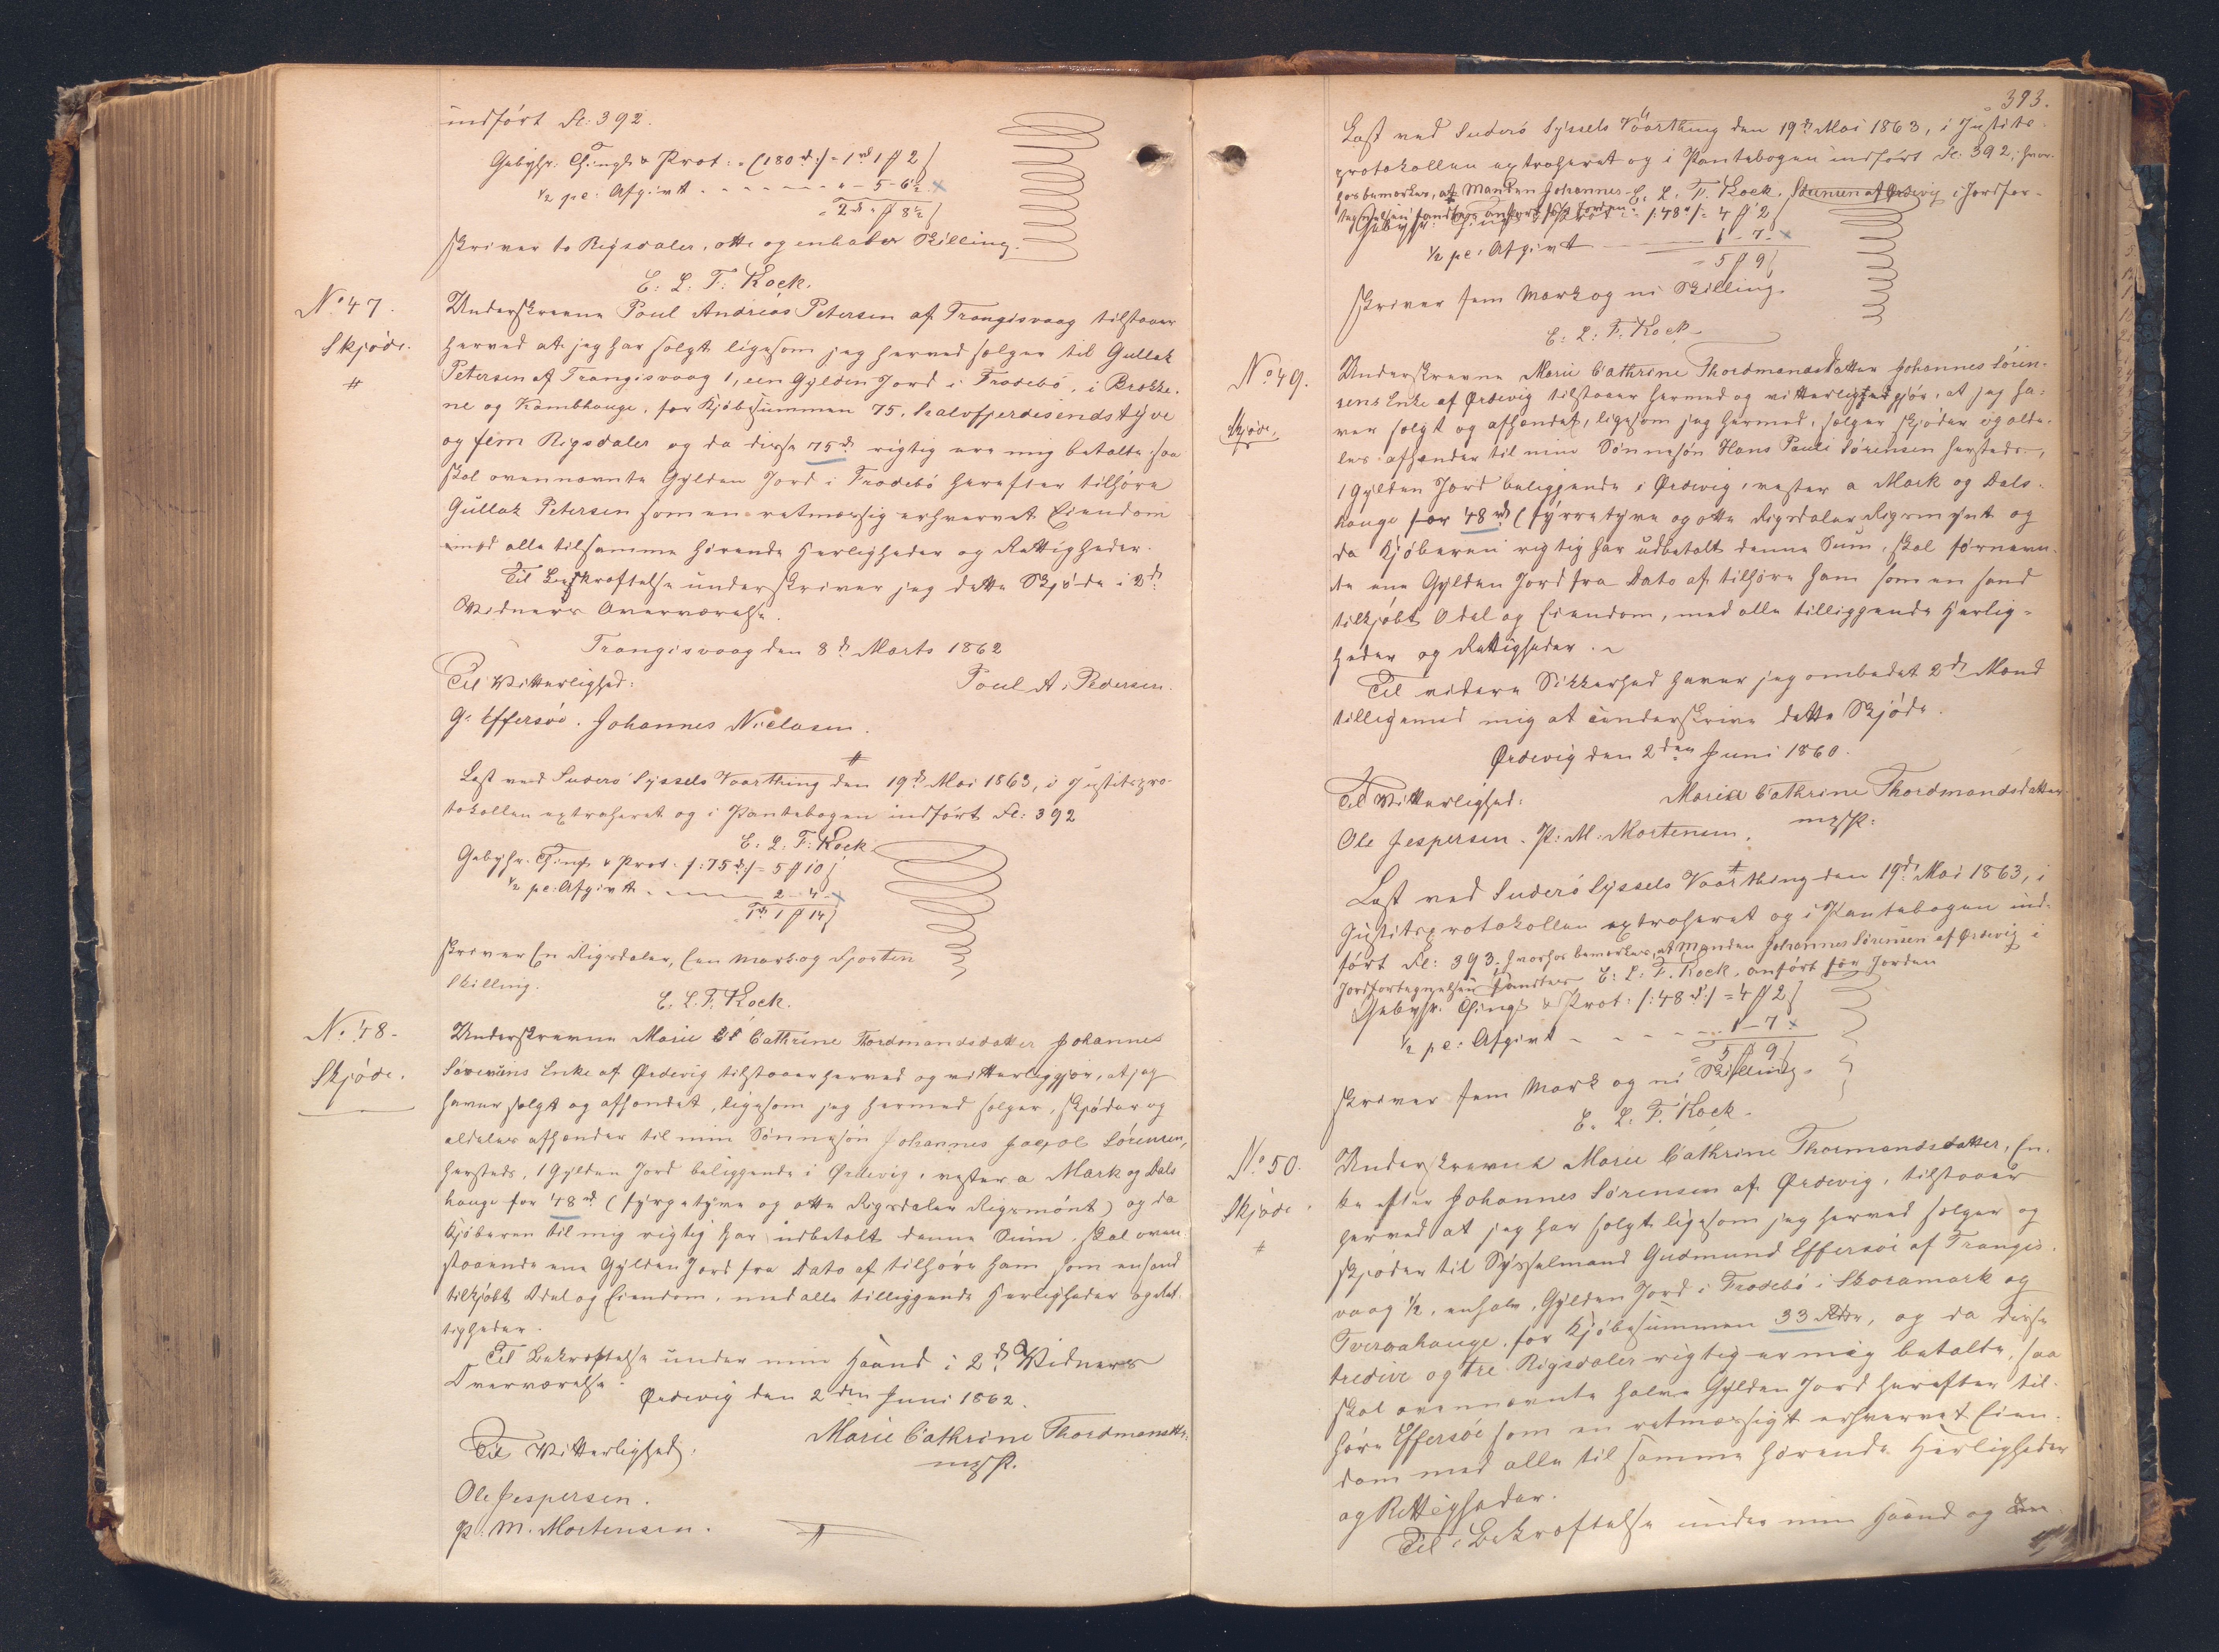 indført Fl: 392.
Gebyhr. Thingl. & Prot: (180 rd:) = 1 rd 1 ß 2
½ pc. Afgivt - - - - - " - 5 - 6½ x
= 2 rd " ß 8½
skriver to Rigsdaler, otte og enhalv Skilling.
E: L: F: Kock.
No 47.
Skjøde.
#
Underskrevne Poul Andreas Petersen af Trangisvaag tilstaaer
herved at jeg har solgt ligesom jeg herved sælger til Gullak
Petersen af Trangisvaag 1, een Gylden Jord i Frodebø, i Brekke-
ne og Kambhauge, for Kjøbesummen 75, halvfjerdesindstyve
og fem Rigsdaler og da disse 75 rd rigtig ere mig betalte, saa
skal ovennævnte Gylden Jord i Frodebø herefter tilhøre
Gullak Petersen som en retmæssig erhvervet Eiendom
med alle tilsamme hørende Herligheder og Rettigheder.
Til Bekræftelse underskriver jeg dette Skjøde i 2de
Vidners Overværelse.
Trangisvaag den 8de Marts 1862
Til Vitterlighed: Poul A. Pedersen.
G. Effersøe. Johannes Nielasen.
#
Læst ved Suderø Syssels Vaarthing den 19de Mai 1863, i Justitspro-
tokollen extraheret og i Pantebogen indført Fl: 392
E: L: F: Kock.
Gebyhr. Thingl. & Prot. /:75 rd:/ = 5 ß 10
½ pc: Afgivt - - - - 2 - 4 - x
1 rd 1 ß 14
skriver En Rigsdaler, Een Mark og Fjorten
Skilling.
E. L. F. Kock.
No. 48.
Skjøde.
Underskrevne Marie Cathrine Thordmandsdatter Johannes
Sørensens Enke af Ørdevig tilstaaer herved og vitterliggjør, at jeg
haver solgt og afhændet, ligesom jeg hermed sælger, skjøder og
aldeles afhænder til min Sønnesøn Johannes Jacob Sørensen,
hersteds, 1 Gylden Jord beliggende i Ørdevig, vester a Mark og Dals
hauge for 48 rd (fyrgetyve og otte Rigsdaler Rigsmønt) og da
Kjøberen til mig rigtig har udbetalt denne Sum, skal oven-
staaende ene Gylden Jord fra Dato af tilhøre ham som en sand
tilkjøbt Odel og Eiendom, med alle tilliggende Herligheder og Ret-
tigheder.
Til Bekræftelse under min Haand i 2de Vidners
Overværelse.
Ørdevig den 2den Juni 1862.
Til Vitterlighed: Marie Cathrine Thordmansdtr.
m.f.P.
Ole Jespersen.
P. M. Mortensen.
393.
Læst ved Suderø Syssels Vaarthing den 19de Mai 1863, i Justits-
protokollen extraheret og i Pantebogen indført Fl: 392, hvor-
hos bemærkes, at Manden Johannes E. L. F. Kock. Sørensen af Ørdevig i Jordfor-
tegnelsen fandtes anført for Jorden.
Gebyhr. Thingl. & Prot: /:48 rd:/ = 4 ß 2
½ pc: Afgivt - 1 - 7 - x
= 5 ß 9
skriver fem Mark og ni Skilling.
E: L: F: Kock.
No 49.
Skjøde.
Underskrevne Marie Cathrine Thordmandsdatter Johannes Søren-
sens Enke af Ørdevig tilstaaer hermed og vitterlighed gjør, at jeg ha-
ver solgt og afhændet, ligesom jeg hermed, sælger skjøder og alde-
les afhænder til min Sønnesøn Hans Pauli Sørensen hersteds,
1 Gylden Jord beliggende i Ørdevig, vester a Mark og Dals-
hauge for 48 rd (fyrretyve og otte Rigsdaler Rigsmynt og
da Kjøberen rigtig har udbetalt denne Sum, skal førnævn-
te ene Gylden Jord fra Dato af tilhøre ham som en sand
tilkjøbt Odel og Eiendom, med alle tilliggende Herlig-
heder og Rettigheder.
Til videre Sikkerhed haver jeg ombedet 2de Mænd
tilligemed mig at underskrive dette Skjøde.
Ørdevig den 2den Juni 1860.
Til Vitterlighed: Maria Cathrine Thordmandsdatter
Ole Jespersen. P: M: Mortensen. m.f.P.
#
Læst ved Suderø Syssels Vaarthing den 19de Mai 1863, i
Justitsprotokollen extraheret og i Pantebogen ind-
ført Fl: 393, hvorhos bemærkes, at Manden Johannes Sørensen af Ørdevig i
Jordfortegnelsen fandtes E: L: F. Kock. anført for Jorden
Gebyhr. Thingl. & Prot: /:48 rd:/ = 4 ß 2
½ pc: Afgivt - - - - 1 - 7 x
= 5 ß 9
skriver fem Mark og ni Skilling.
E. L. F. Kock.
No. 50.
Skjøde.
#
Underskrevne Marie Cathrine Thormandsdatter, En-
ke efter Johannes Sørensen af Ørdevig, tilstaaer
herved at jeg har solgt ligesom jeg herved sælger og
skjøder til Sysselmand Gudmund Effersøe af Trangis-
vaag ½, enhalv, Gylden Jord i Frodebø i Skoramark og
Tveraahauge, for Kjøbesummen 33 Rdlr, og da disse
tredive og tre Rigsdaler rigtig er mig betalte, saa
skal ovennævnte halve Gylden Jord herefter til-
høre Effersøe som en retmæssigt erhvervet Eien-
dom med alle til samme hørende Herligheder
og Rettigheder.
Til Bekræftelse under min Haand og